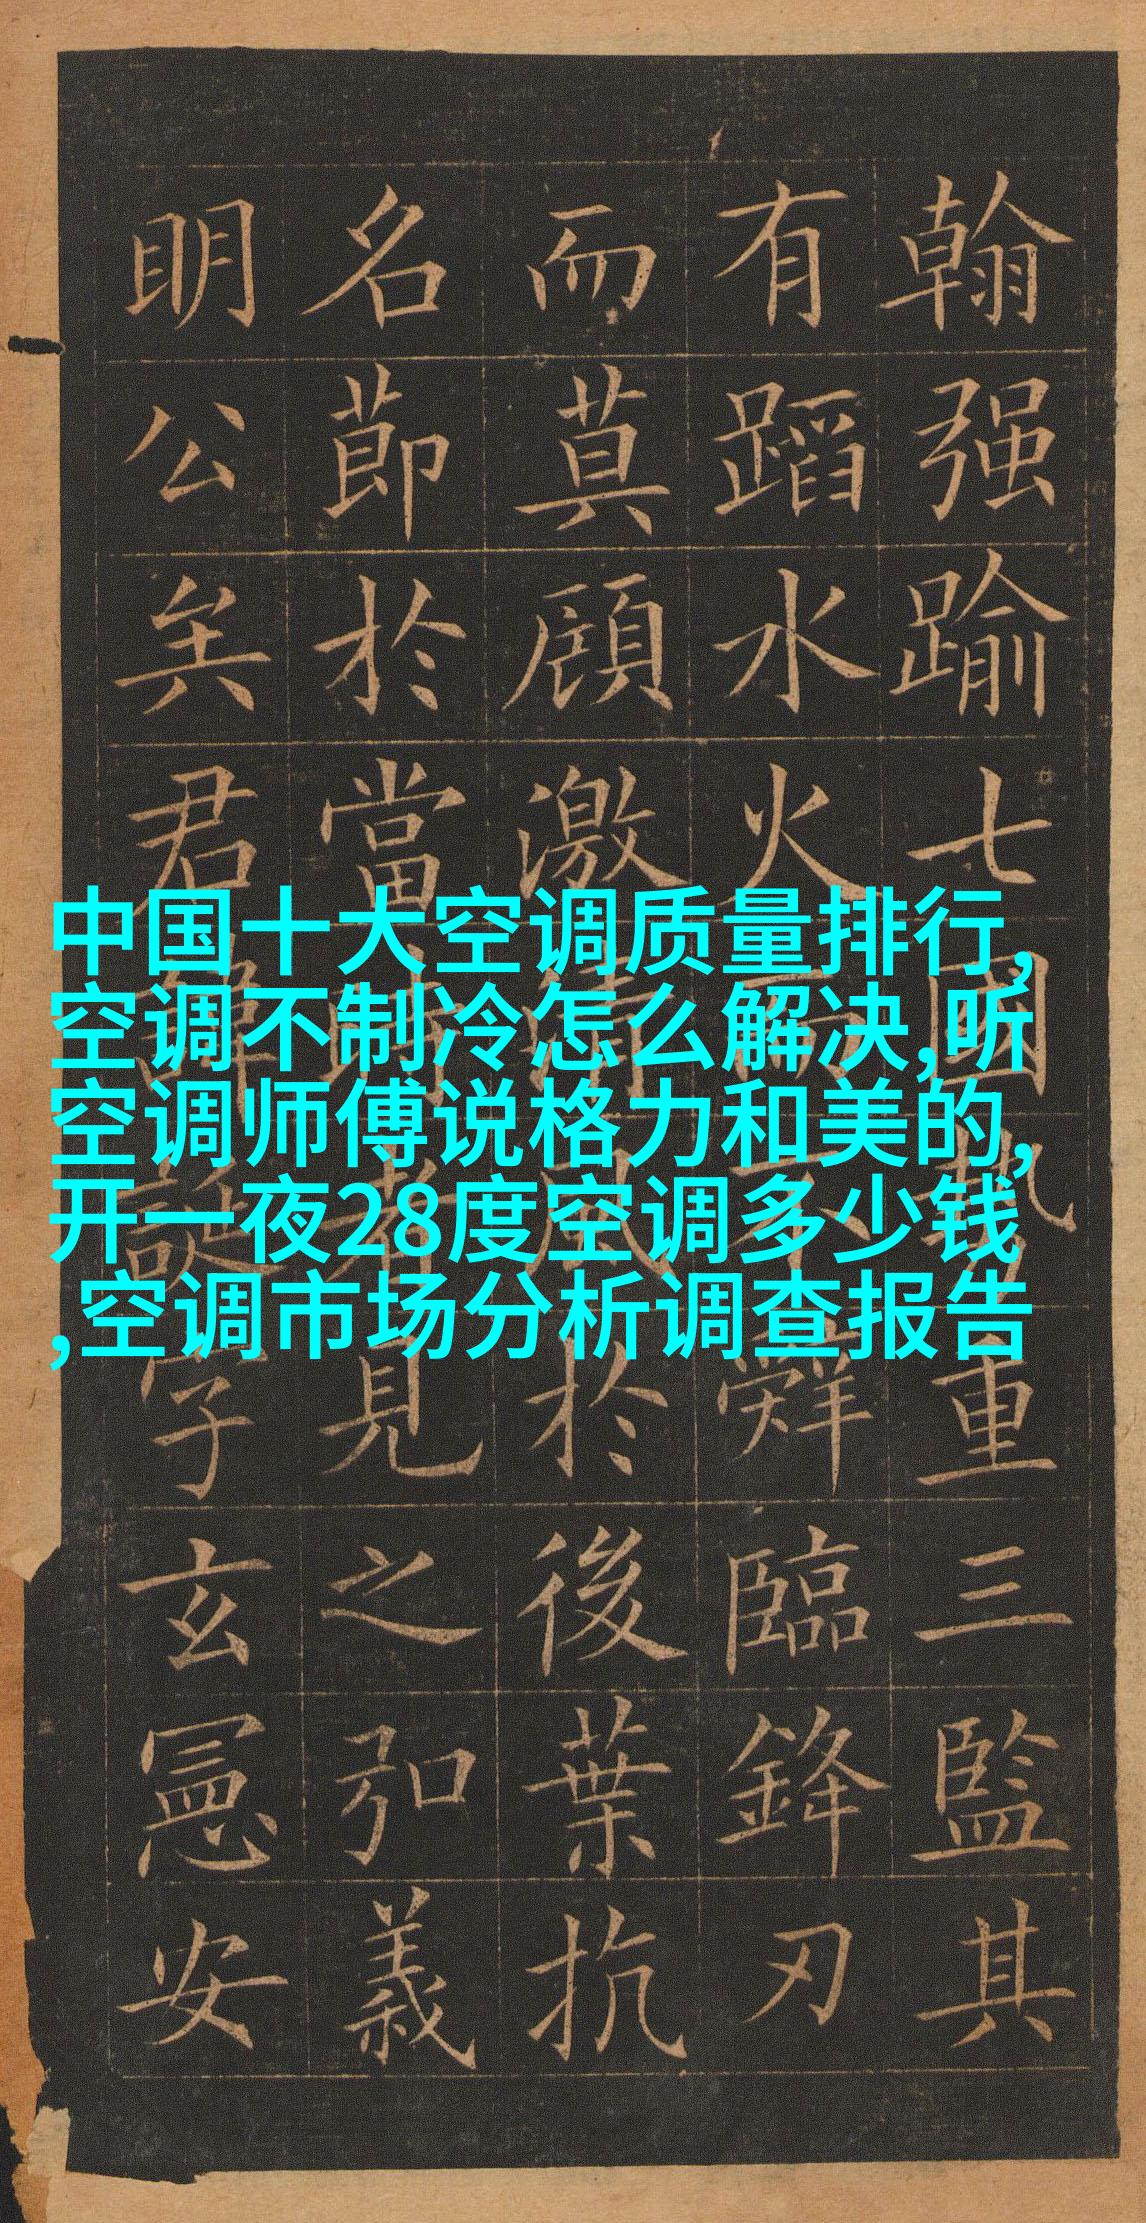 翰强踰七國勢重三監其
有蹈水火而不辤臨鋒刃
而莫顧激清風於後葉抗
名節於當時者見之弘義
明公矣君諱誕字玄憲安
中国十大空调质量排行,
空调不制冷怎么解决,听
空调师傅说格力和美的,
开一夜28度空调多少钱
,空调市场分析调查报告